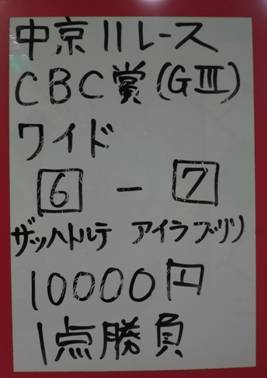 中京11レース
CBC賞(GⅢ)
ワイド
6 - 7
ザッハトルテ アイラブリリ
10000円
1点勝負